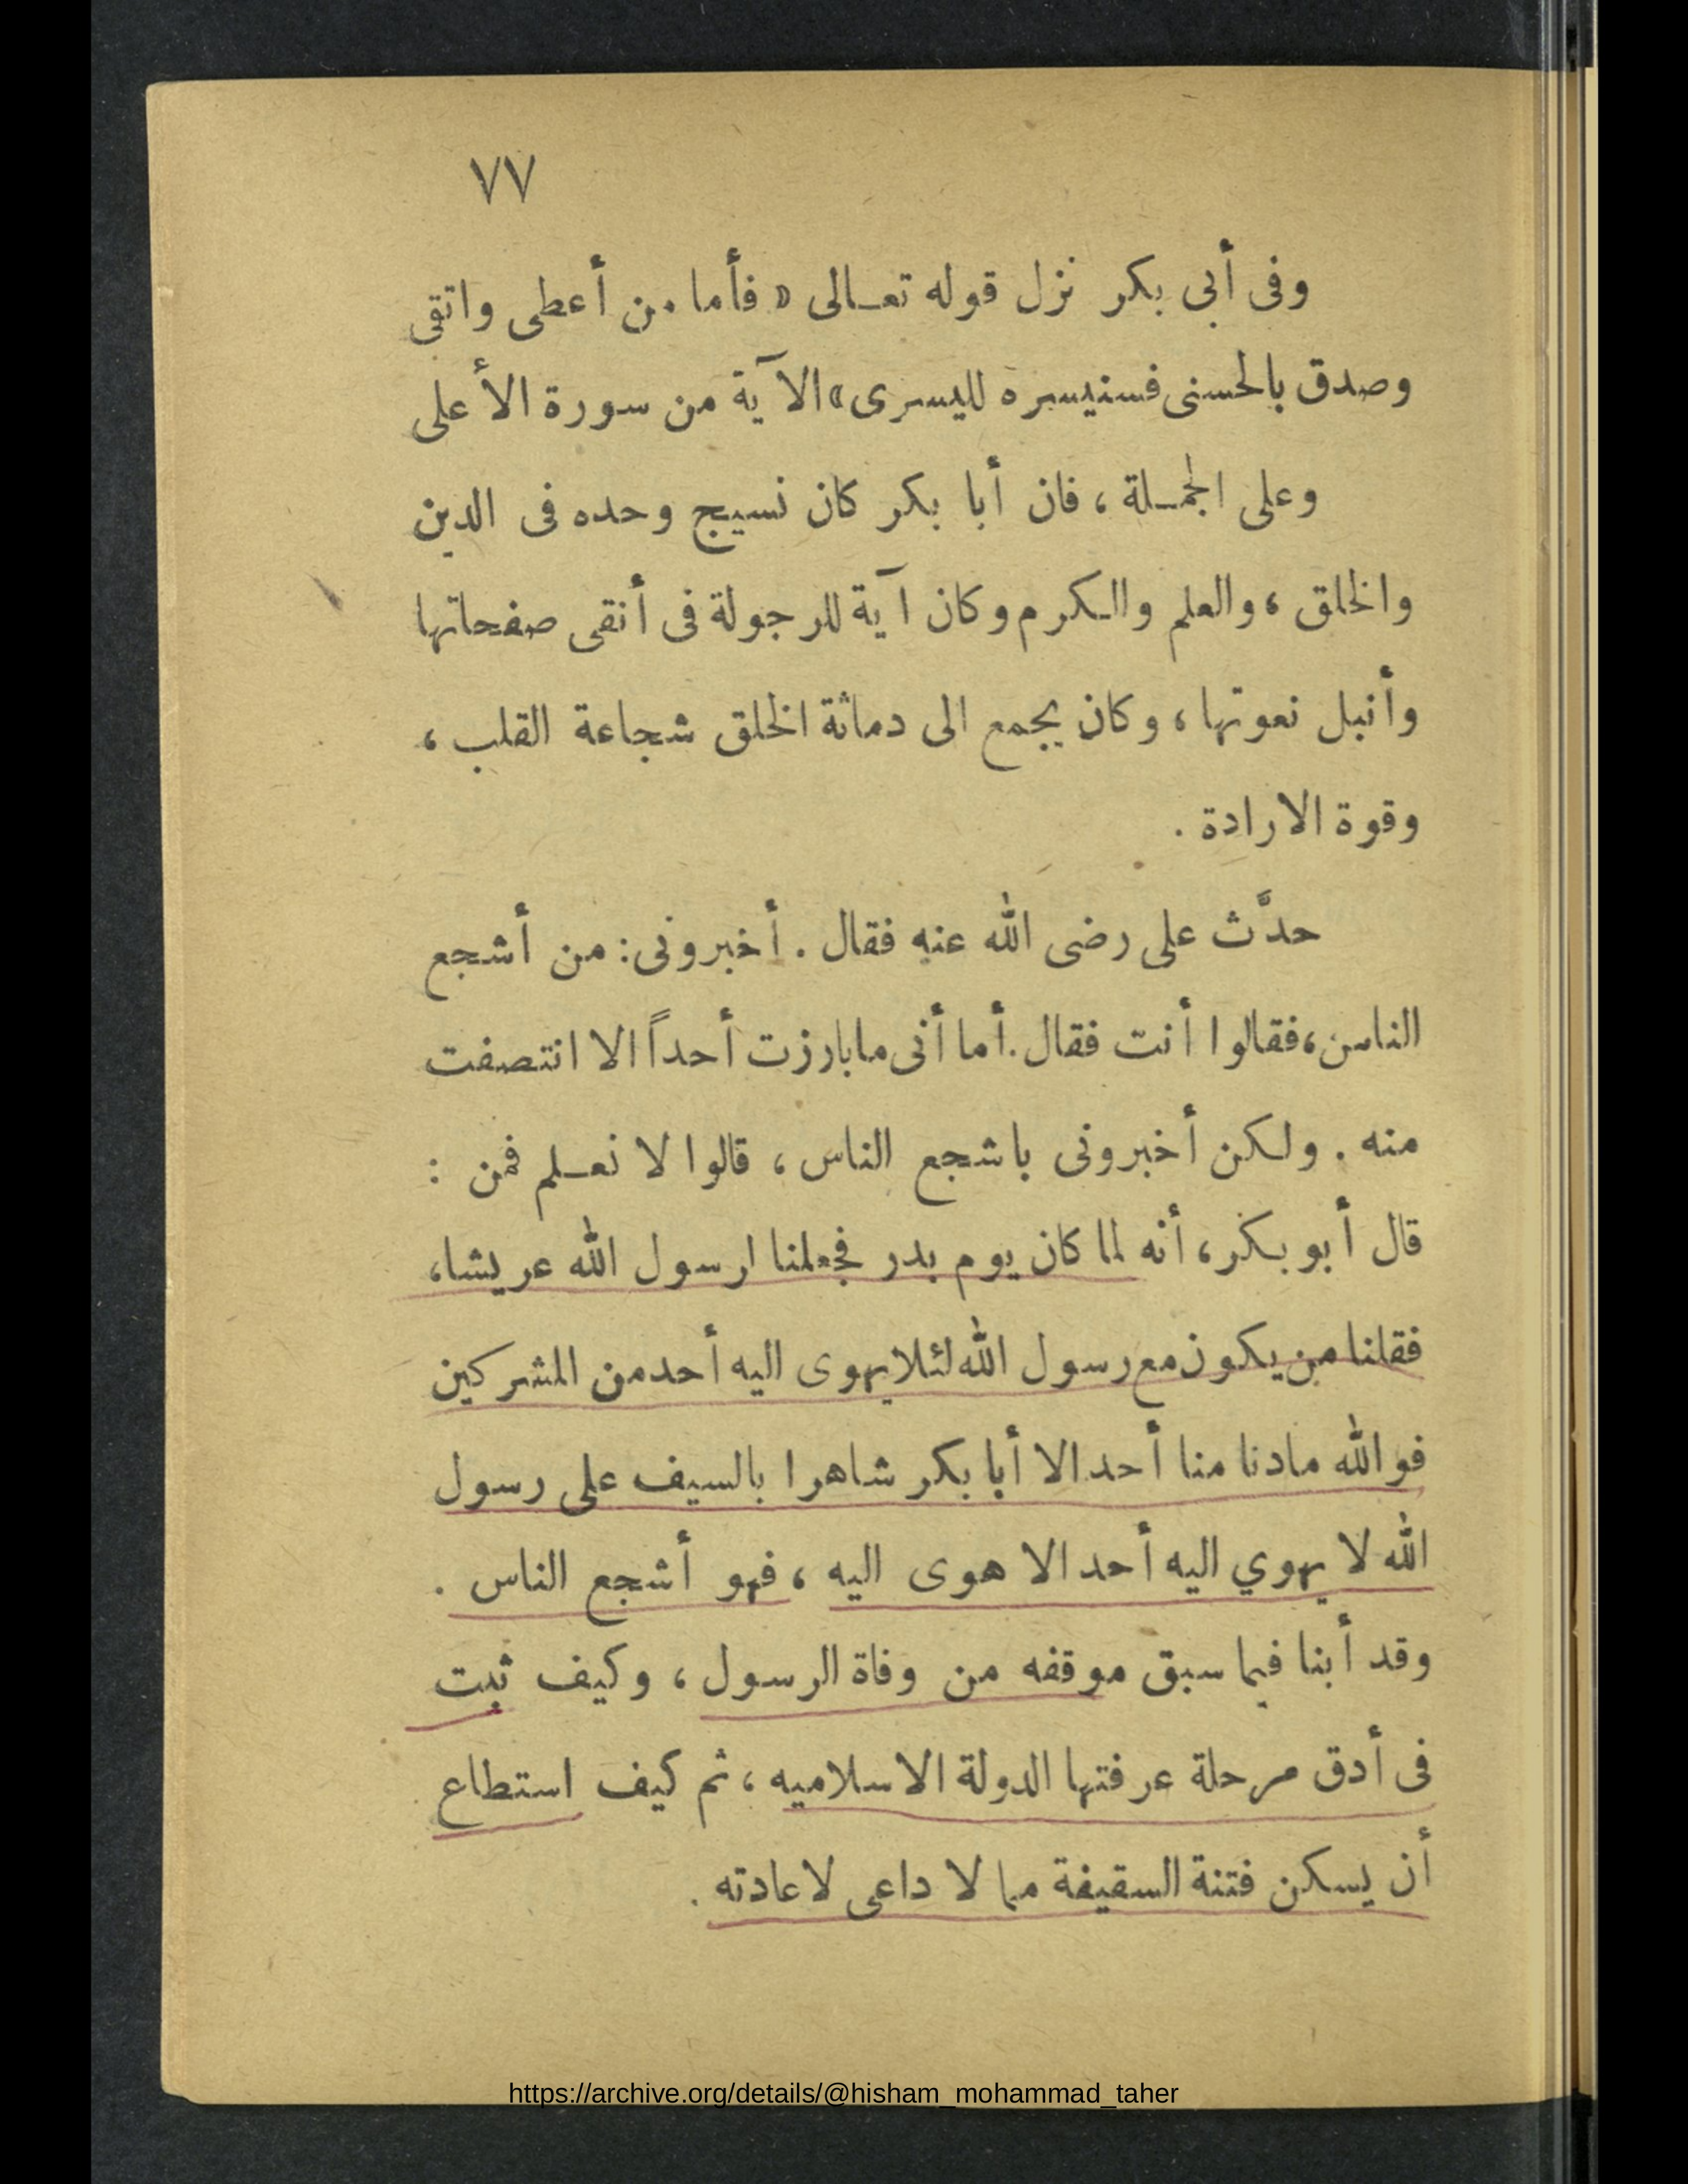 ٧٧
وفى أبى بكر نزل قوله تعالى « فأما من أعطى واتقى
وصدق بالحسنى فسنيسره لليسرى » الآية من سورة الأعلى
وعلى الجملة ، فان أبا بكر كان نسيج وحده فى الدين
والخلق ، والعلم والكرم وكان آية للرجولة فى أنقى صفحاتها
وأنبل نعوتها ، وكان يجمع الى دماثة الخلق شجاعة القلب ،
وقوة الارادة .
حدَّث على رضى الله عنه فقال . أخبرونى : من أشجع
الناس ، فقالوا أنت فقال . أما أنى ما بارزت أحداً الا انتصفت
منه . ولكن أخبرونى باشجع الناس ، قالوا لا نعلم فمن :
قال أبو بكر ، أنه لما كان يوم بدر فجعلنا لرسول الله عريشا ،
فقلنا من يكون مع رسول الله لئلا يهوى اليه أحد من المشركين
فو الله ما دنا منا أحد الا أبا بكر شاهرا بالسيف على رسول
الله لا يهوي اليه أحد الا هوى اليه ، فهو أشجع الناس .
وقد أبنا فيما سبق موقفه من وفاة الرسول ، وكيف ثبت
فى أدق مرحلة عرفتها الدولة الاسلاميه ، ثم كيف استطاع
أن يسكن فتنة السقيفة مما لا داعى لاعادته .
https://archive.org/details/@hisham_mohammad_taher